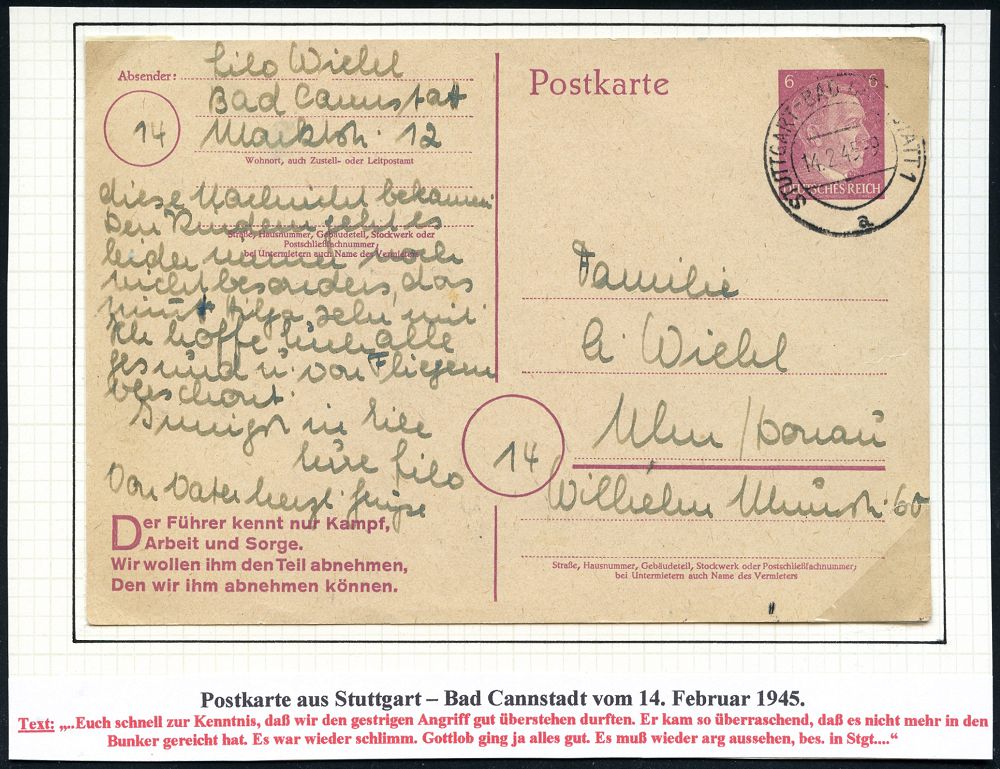 Absender: Lilo Wiehl
Bad Cannstatt
14
Marktstr. 12
Wohnort, auch Zustell- oder Leitpostamt
diese Nachricht bekamen
Den Kindern geht es
Straße, Hausnummer, Gebäudeteil, Stockwerk oder
Postschließfachnummer;
bei Untermietern auch Name des Vermieters
leider immer noch
nicht besonders, das
nimmt
Ich hoffe Euch alle
gesund u. von Fliegern
verschont.
Innigst in
Eure Lilo
Von Vater herzl.
Der Führer kennt nur Kampf,
Arbeit und Sorge.
Wir wollen ihm den Teil abnehmen,
Den wir ihm abnehmen können.
Postkarte
6 6
DEUTSCHES REICH
STUTTGART-BAD CANNSTATT 1
14.2.45-9
a
Familie
A. Wiehl
14
Ulm / Donau
Wilhelm Murrstr. 60
Straße, Hausnummer, Gebäudeteil, Stockwerk oder Postschließfachnummer;
bei Untermietern auch Name des Vermieters
Postkarte aus Stuttgart – Bad Cannstadt vom 14. Februar 1945.
Text: „..Euch schnell zur Kenntnis, daß wir den gestrigen Angriff gut überstehen durften. Er kam so überraschend, daß es nicht mehr in den
Bunker gereicht hat. Es war wieder schlimm. Gottlob ging ja alles gut. Es muß wieder arg aussehen, bes. in Stgt....“